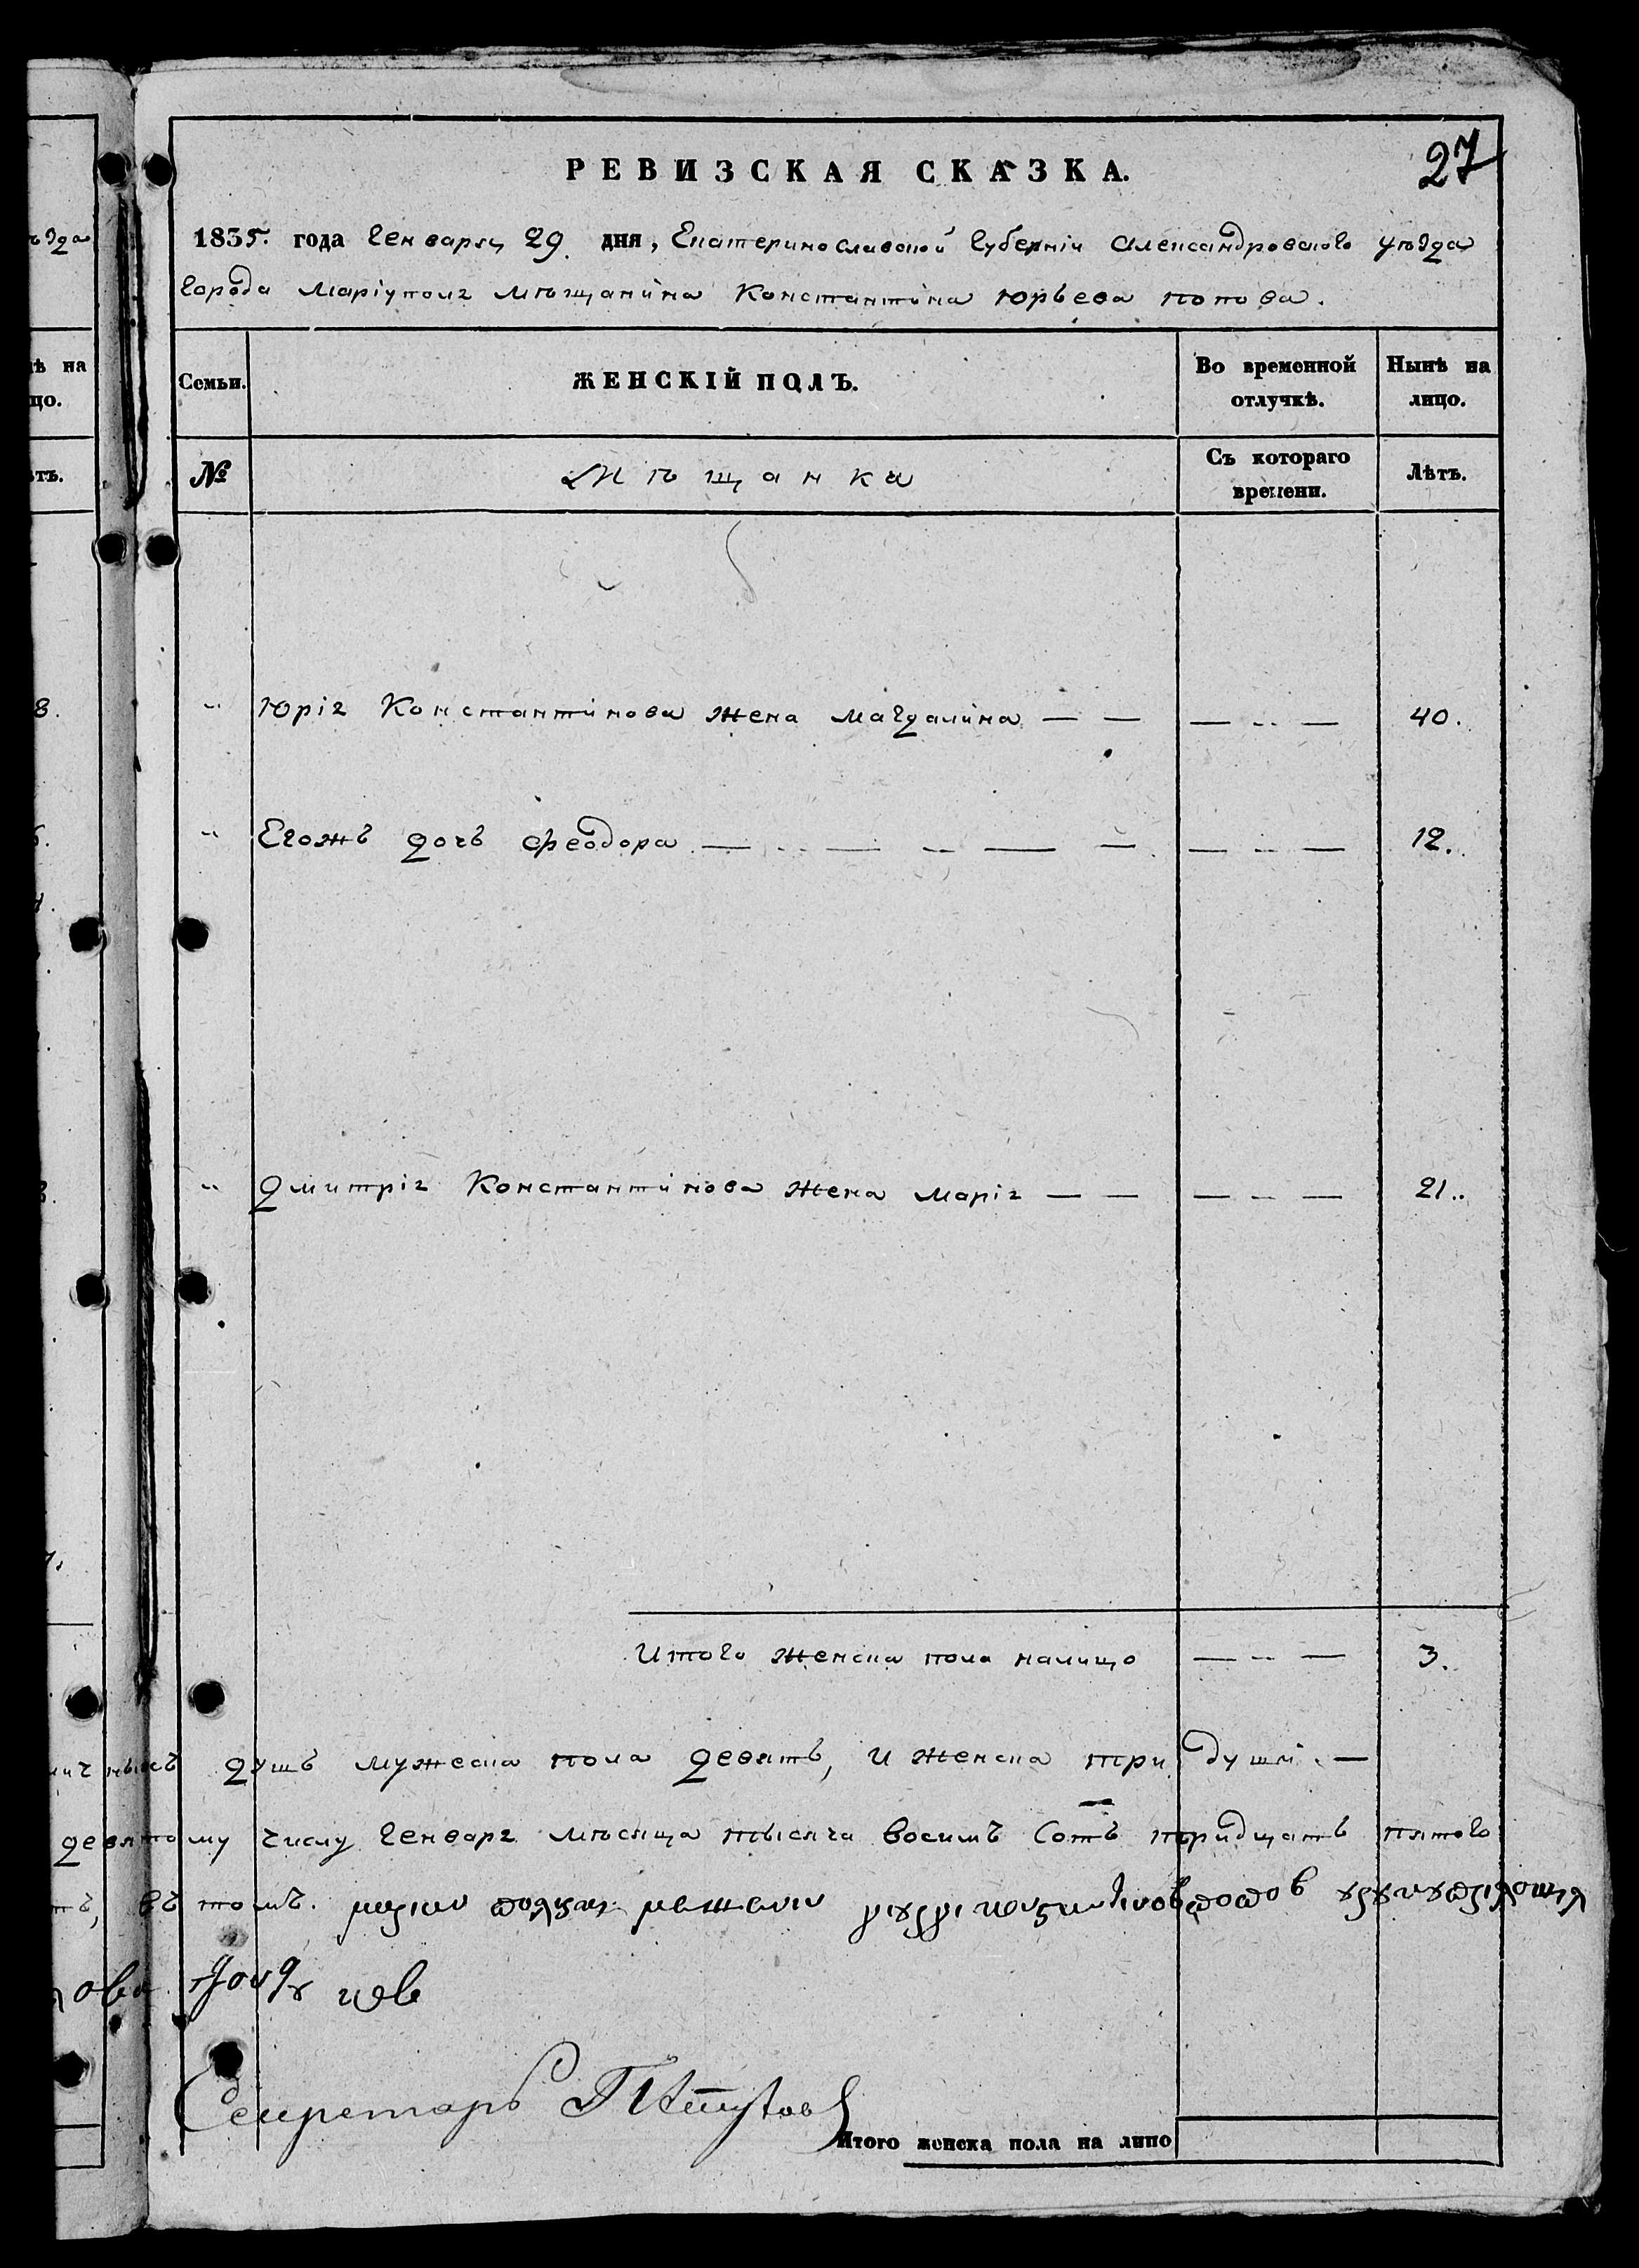 27
РЕВИЗСКАЯ СКАЗКА.
1835. года Генваря 29. дня, Екатеринославской Губерніи Александровскаго уѣзда
Города Маріуполя мѣщанина Константина Юрьева Попова.
Семьи. ЖЕНСКІЙ ПОЛЪ. Во временной отлучкѣ. Нынѣ на лицо.
№ Мѣщанка Съ котораго времени. Лѣтъ.
„ Юрія Константинова жена Магдалина — — — „ — 40.
„ Егожъ дочь Феодора — „ — „ — — — „ — 12.
„ Дмитрія Константинова жена Марія — — — „ — 21.
Итого женска пола налицо — „ — 3.
душъ мужеска пола девять, и женска три души. —
девятому числу Генваря мѣсяца тысяча восимъ сотъ тридцать пятого
въ томъ.
Секретарь
Итого женска пола на лицо